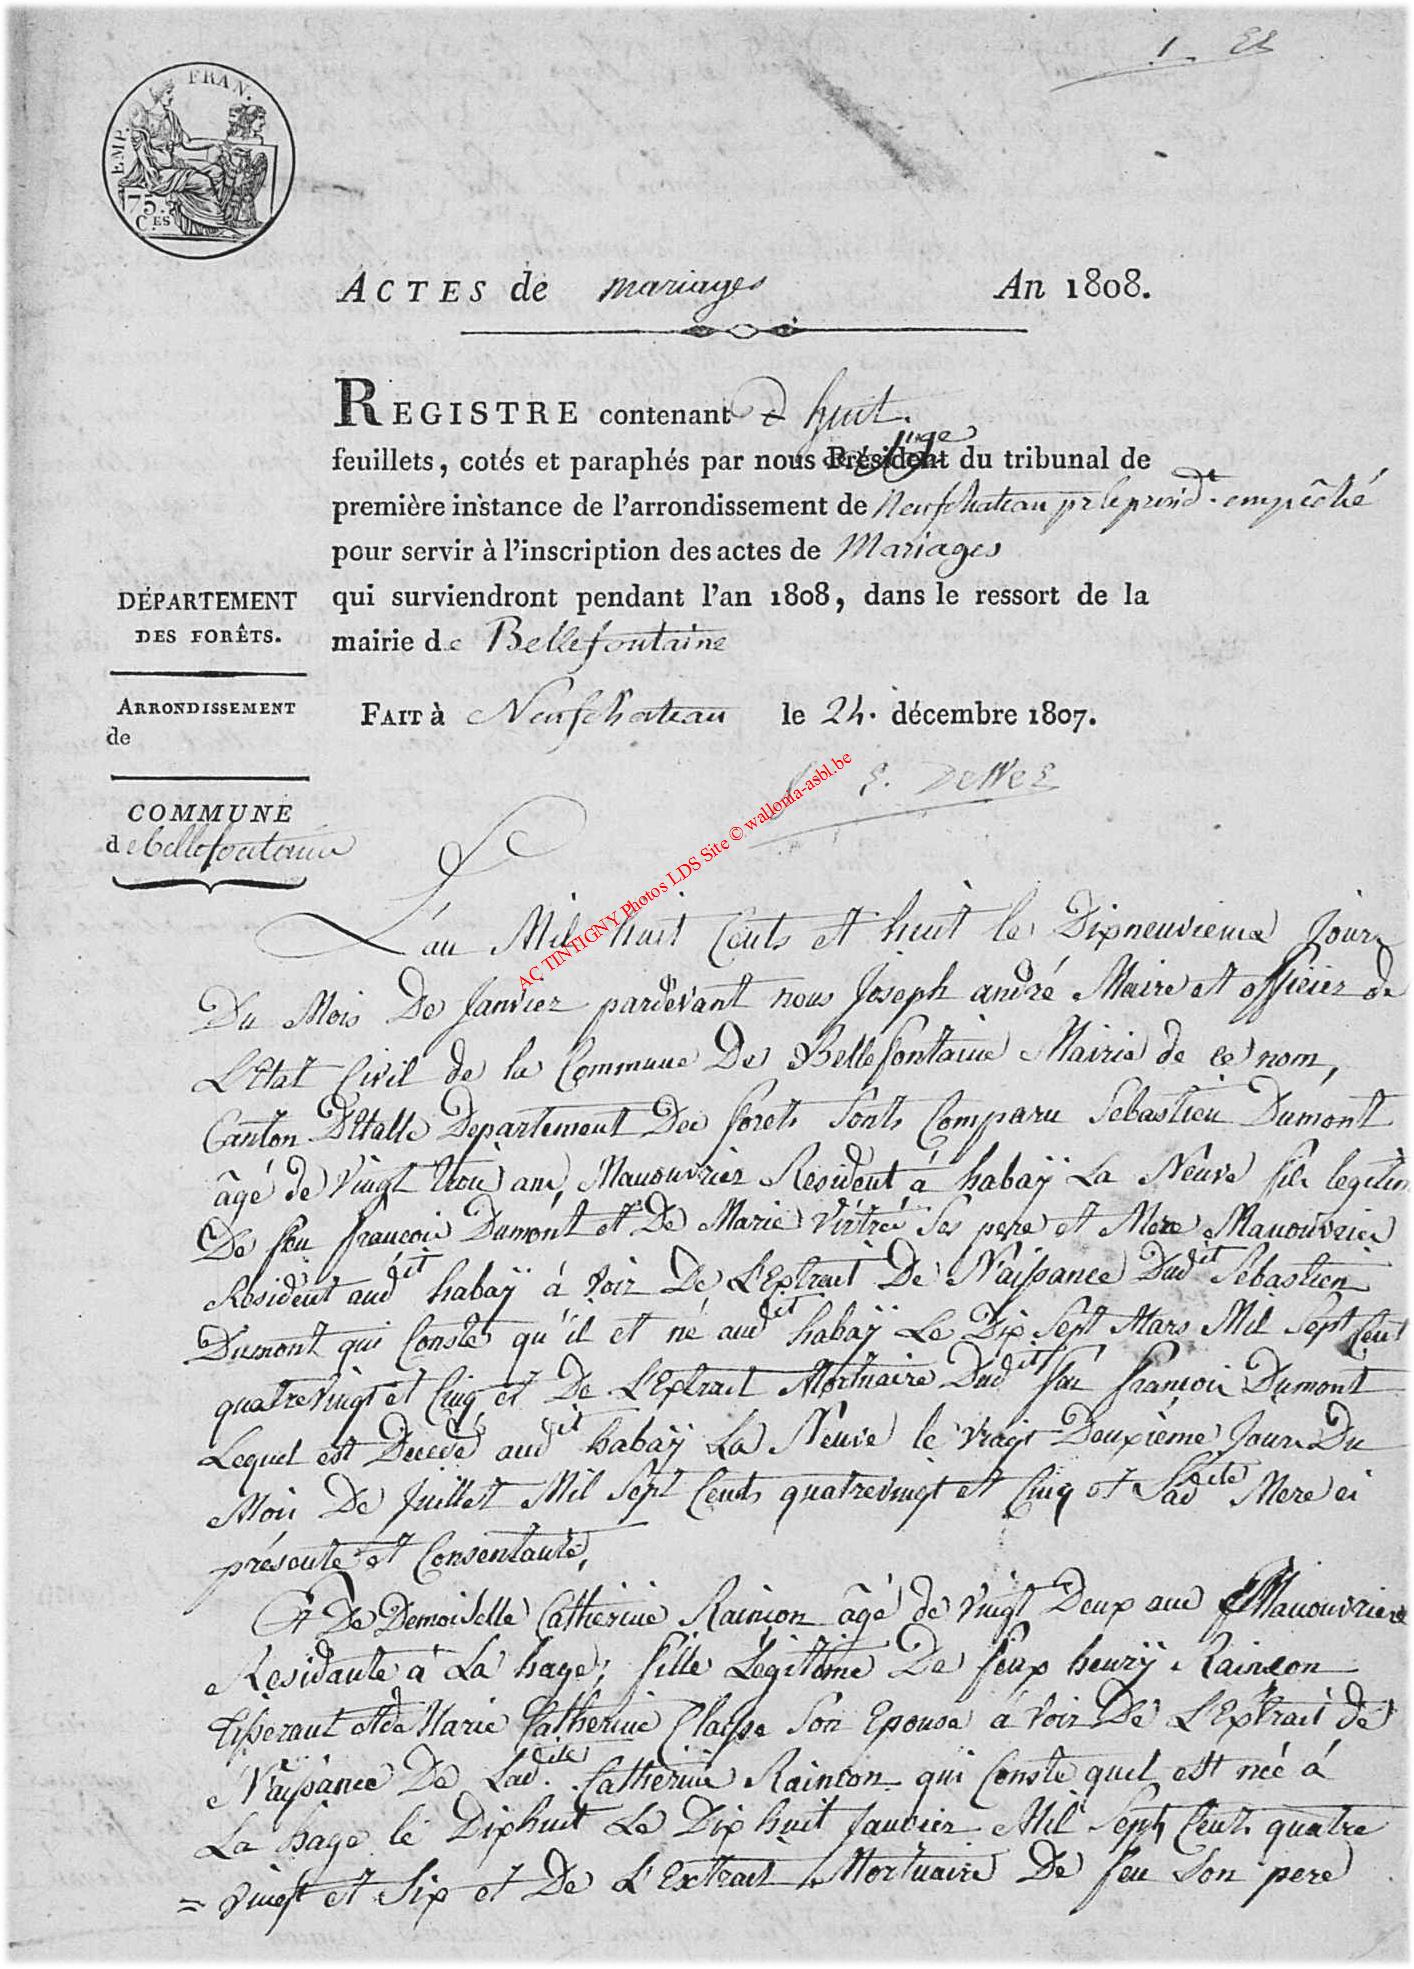 1. ES
EMP. FRAN.
75.
C.ES
ACTES de mariages An 1808.
REGISTRE contenant huit.
feuillets, cotés et paraphés par nous Président juge du tribunal de
première instance de l'arrondissement de Neufchateau pr le presidt. empêché
pour servir à l'inscription des actes de Mariages
qui surviendront pendant l'an 1808, dans le ressort de la
mairie de Bellefontaine
DÉPARTEMENT
DES FORÊTS.
ARRONDISSEMENT
de
FAIT à Neufchateau le 24. décembre 1807.
COMMUNE
de bellefontaine
AC TINTIGNY Photos LDS Site © wallonia-asbl.be
L'an Mil huit Cents et huit le Dixneuvieme Jour
Du Mois De Janvier pardevant nous Joseph andré Maire et officier de
L'Etat Civil de la Commune De Bellefontaine Mairie de ce nom,
Canton D'Etalle Departement Des forets Sonts Comparu Sebastien Dumont
âgé de Vingt trois ans, Manouvrier Resident á habaÿ La Neuve fils legitim
De feu francois Dumont et De Marie Virtrée Ses pere et Mere Manouvrier
Resident audit habaÿ à voir De L'Extrait De Naissance Dudit Sebastien
Dumont qui Conste qu'il et né audit habaÿ Le Dix Sept Mars Mil Sept Cent
quatrevingt et Cinq et De L'Extrait Mortuaire Dudit feu francois Dumont
Lequel est Decedé audit habaÿ La Neuve le vingt Deuxième Jour Du
Mois De Juillet Mil Sept Cents quatrevingt et Cinq et Sadite Mere ci
présente et Consentante,
Et De Demoiselle Catherine Rainson âgé de Vingt Deux ans Manouvriere
Residante à La hage, fille Légitime De feux henrÿ Rainson
tisserant et de Marie Catherine Claisse Son Epouse à voir De L'Extrait de
Naissance De Ladite. Catherine Rainson qui Conste quel est née à
La hage le Dixhuit Le Dix huit Janvier Mil Sept Cents quatre
= vingt et Six et De L'Extrait Mortuaire De feu Son pere